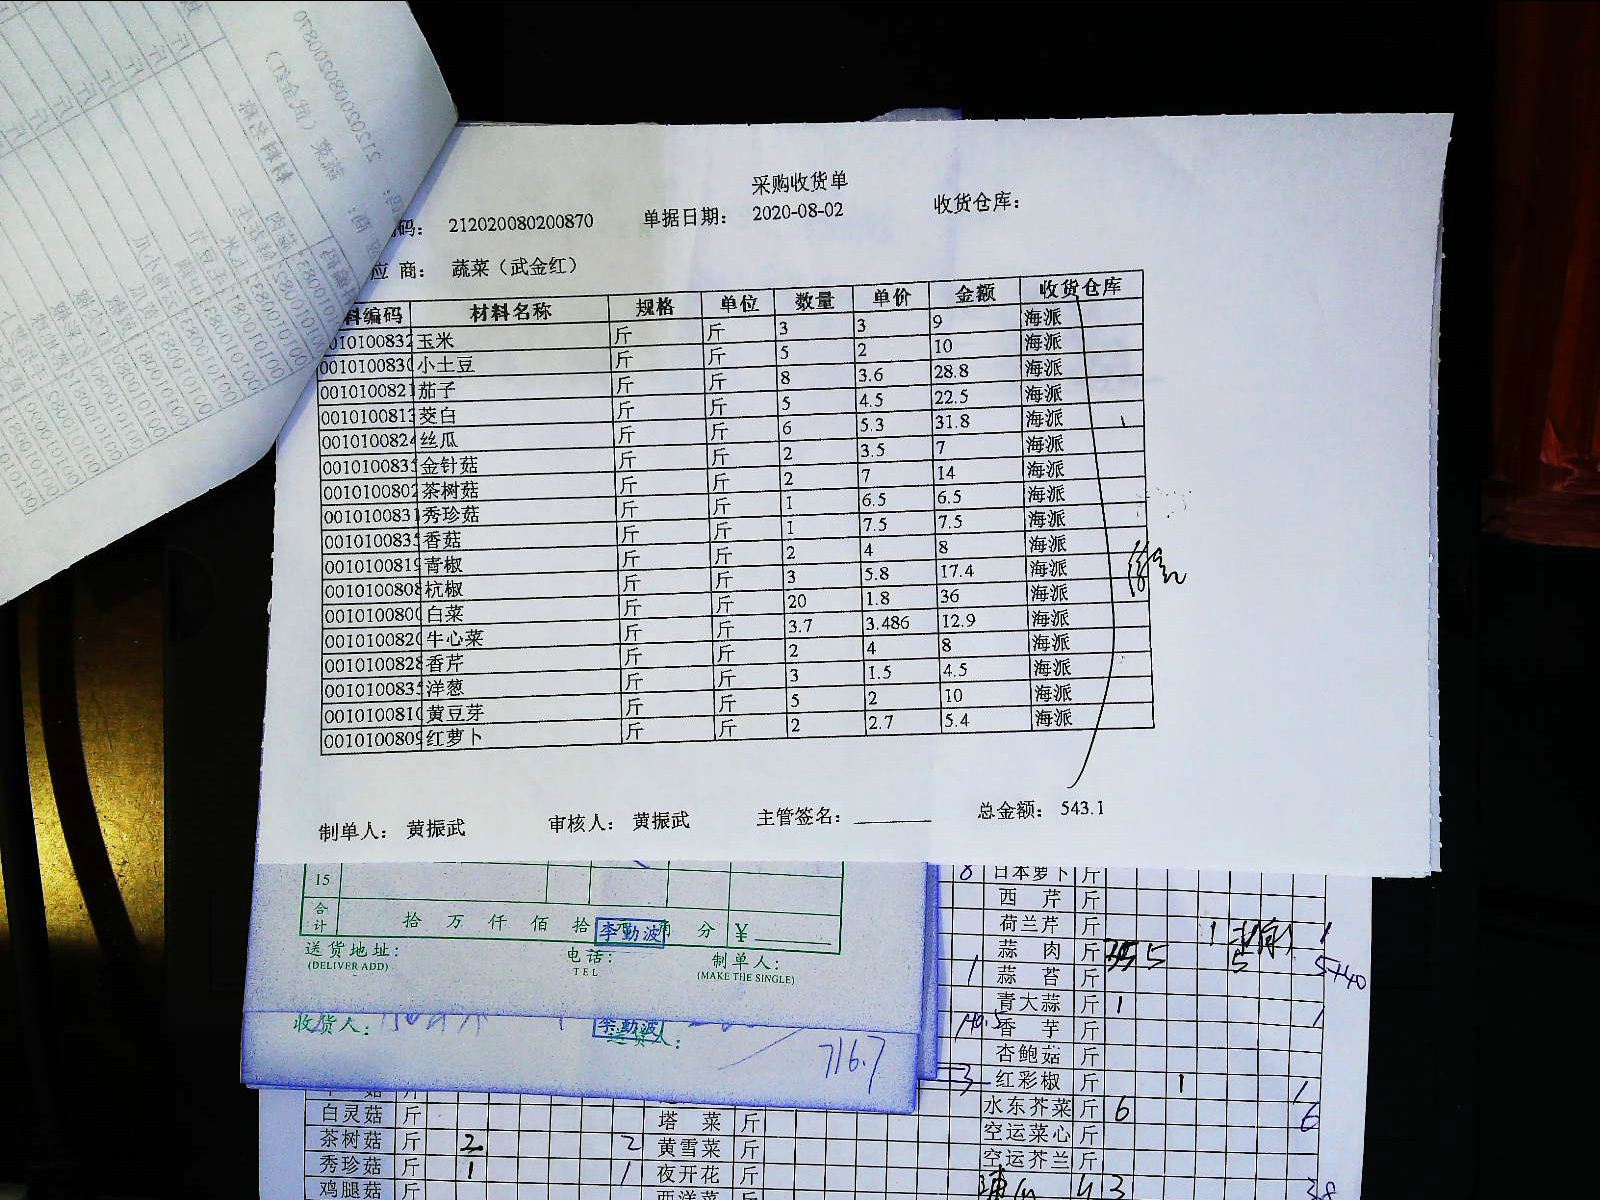 采购收货单
码： 212020080200870 单据日期： 2020-08-02 收货仓库：
应 商： 蔬菜（武金红）
料编码 材料名称 规格 单位 数量 单价 金额 收货仓库
0010100832 玉米 斤 斤 3 3 9 海派
0010100830 小土豆 斤 斤 5 2 10 海派
0010100821 茄子 斤 斤 8 3.6 28.8 海派
0010100813 茭白 斤 斤 5 4.5 22.5 海派
0010100824 丝瓜 斤 斤 6 5.3 31.8 海派
001010083 金针菇 斤 斤 2 3.5 7 海派
0010100802 茶树菇 斤 斤 2 7 14 海派
0010100831 秀珍菇 斤 斤 1 6.5 6.5 海派
001010083 香菇 斤 斤 1 7.5 7.5 海派
0010100819 青椒 斤 斤 2 4 8 海派
0010100808 杭椒 斤 斤 3 5.8 17.4 海派
0010100800 白菜 斤 斤 20 1.8 36 海派
0010100820 牛心菜 斤 斤 3.7 3.486 12.9 海派
0010100828 香芹 斤 斤 2 4 8 海派
001010083 洋葱 斤 斤 3 1.5 4.5 海派
0010100810 黄豆芽 斤 斤 5 2 10 海派
0010100809 红萝卜 斤 斤 2 2.7 5.4 海派
制单人： 黄振武 审核人： 黄振武 主管签名： 总金额： 543.1
15
合计 拾 万 仟 佰 拾 元 角 分 ¥
李勤波
送货地址： 电话： 制单人：
(DELIVER ADD) TEL (MAKE THE SINGLE)
收货人： 李勤波 送货人：
716.7
8 日本萝卜 斤
西 芹 斤
荷兰芹 斤 1 1
蒜 肉 斤 5 5 5+40
1 蒜 苔 斤
青大蒜 斤 1 1
香 芋 斤
杏鲍菇 斤
3 红彩椒 斤 1 1
水东芥菜 斤 6 6
空运菜心 斤
空运芥兰 斤
43 38
白灵菇 斤 塔 菜 斤
茶树菇 斤 2 2 黄雪菜 斤
秀珍菇 斤 1 1 夜开花 斤
鸡腿菇 斤 西洋菜 斤